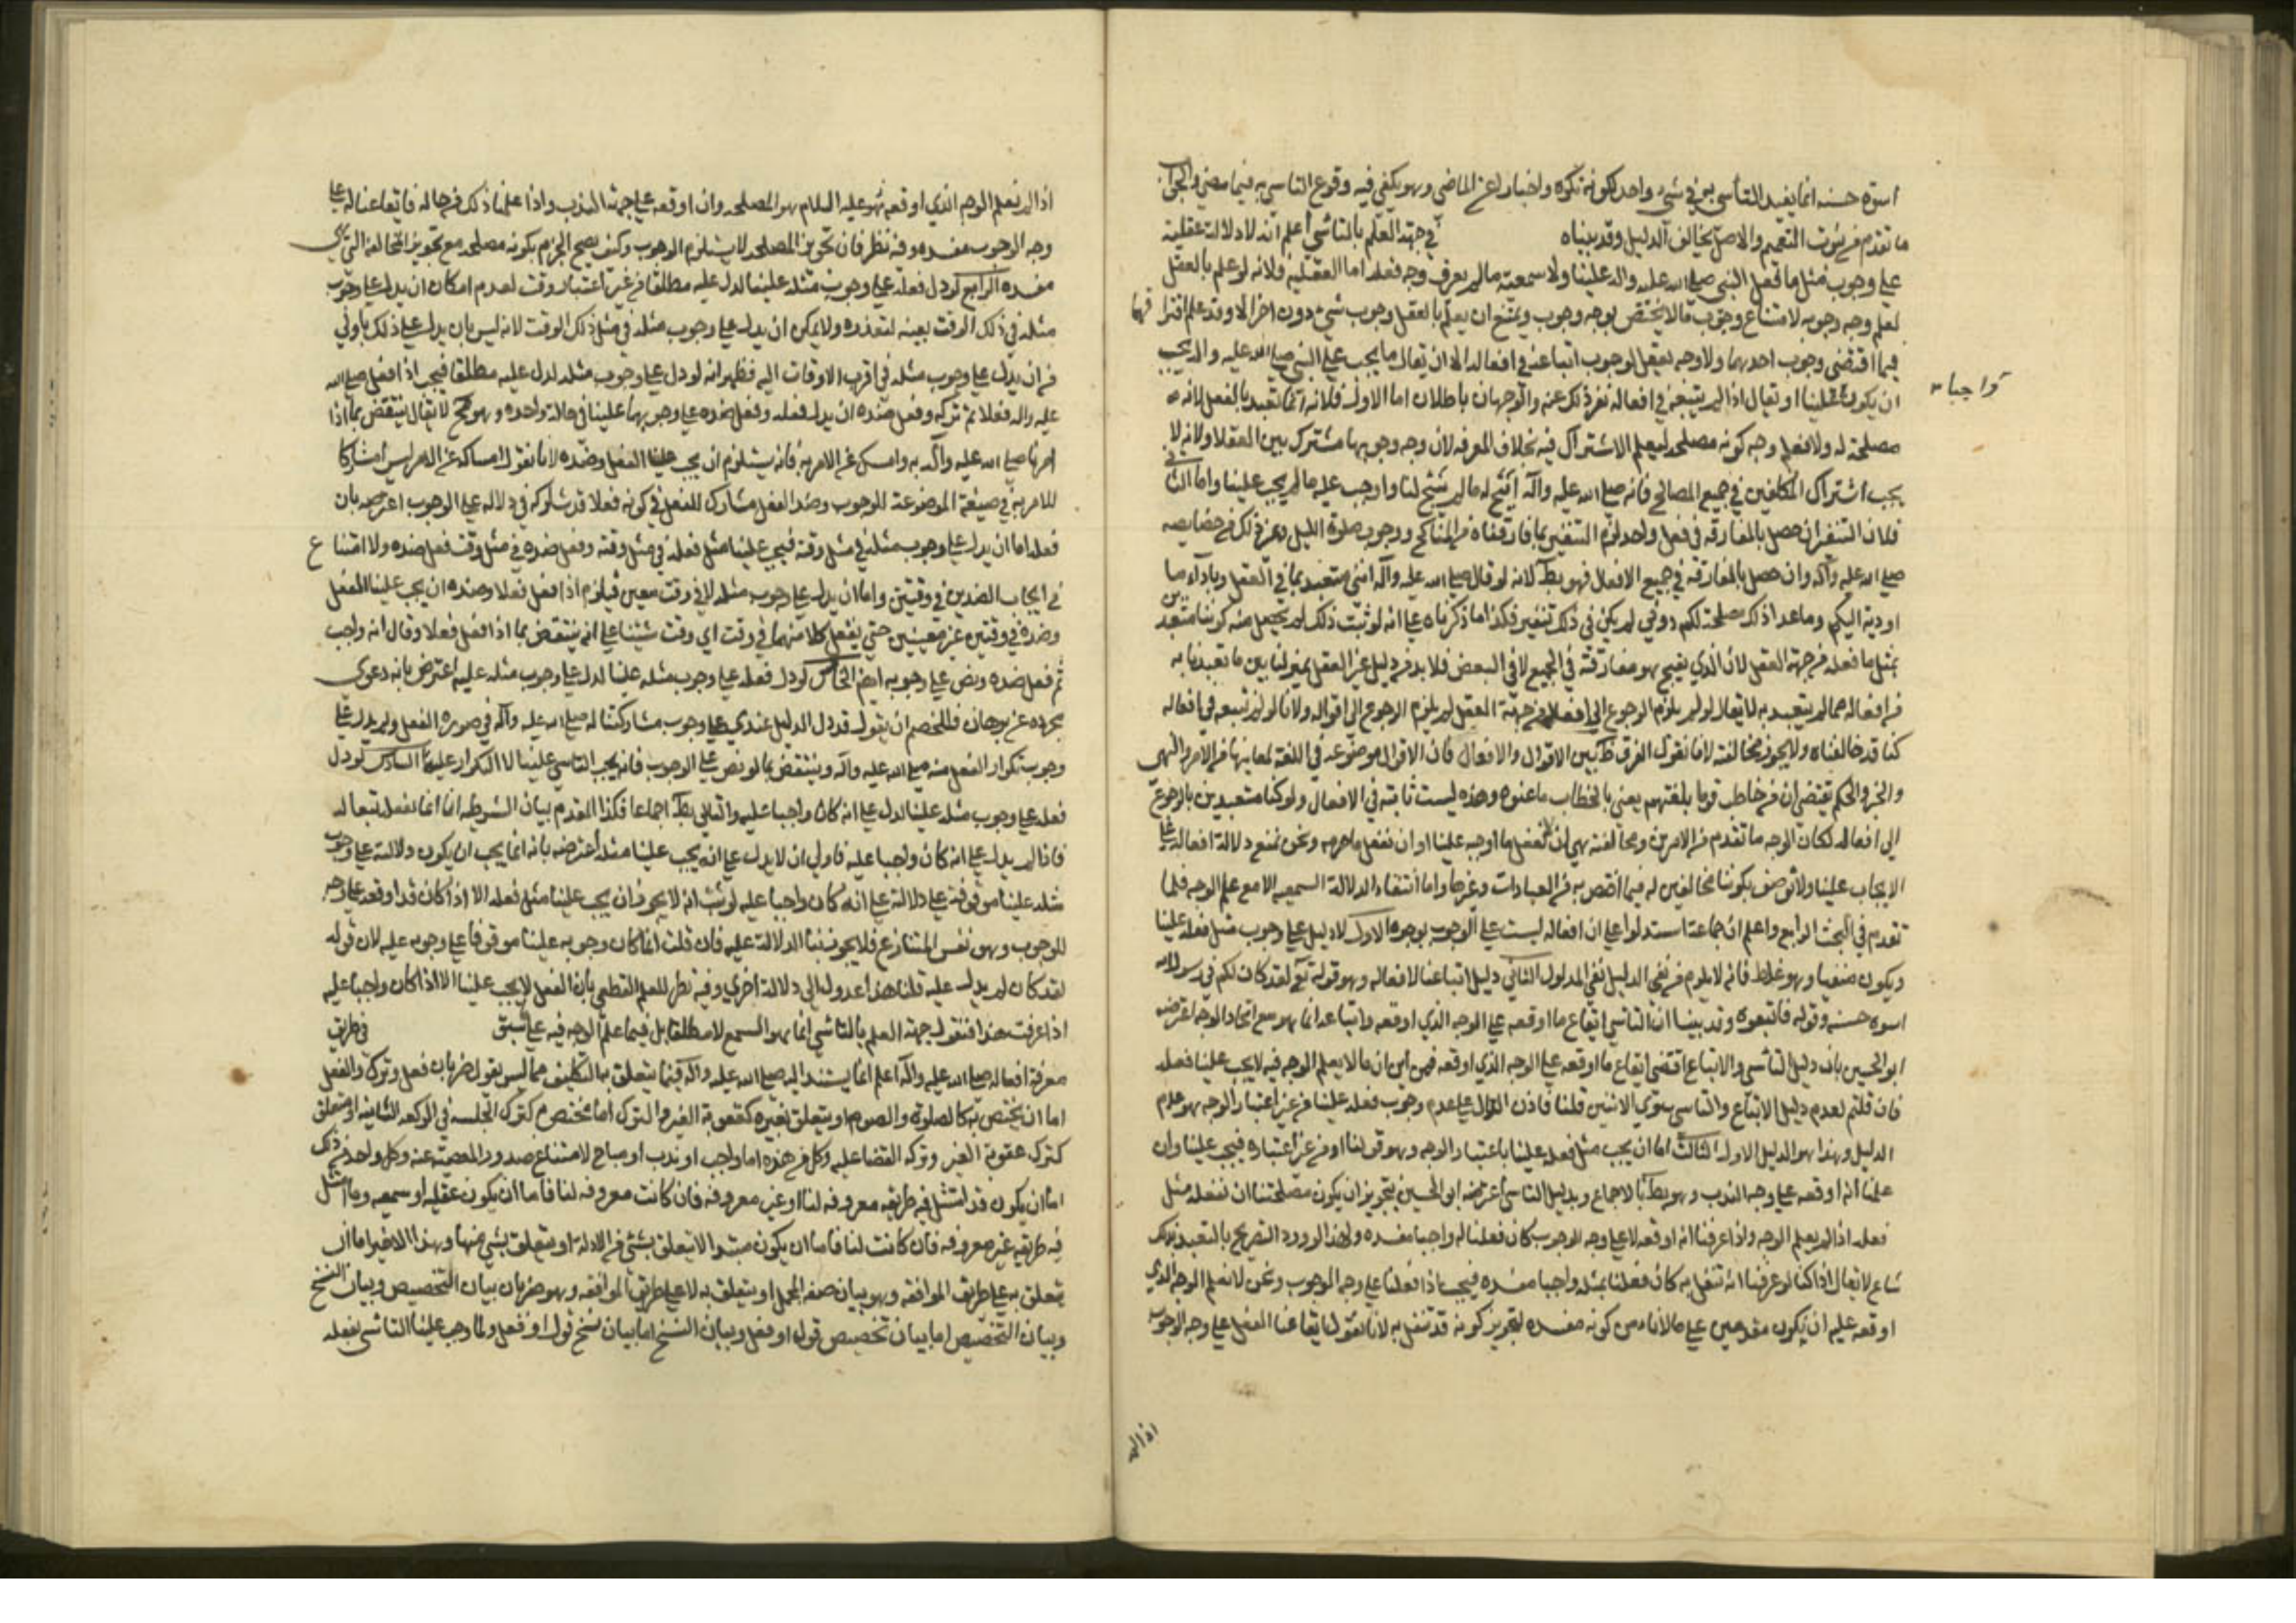 اسوة حسنة انما يفيد التأسي به في شيء واحد لكونه نكرة واخبارا عن الماضي وهو يكفي فيه وقوع التاسي به فيما مضى والجواب
ما تقدم من ثبوت التعميم والاصل يخالف الدليل وقد بيناه في جهة العلم بالتاسي اعلم انه لا دلالة عقلية
على وجوب مثل ما فعل النبي صلى الله عليه واله علينا ولا سمعية ما لم يعرف وجه فعله اما العقلية فلانه لو علم بالعقل
لعلم وجه وجوبه لامتناع وجوب ما لا يختص بوجه وجوب ويمتنع ان يعلم بالعقل وجوب شيء دون اخر الا وقد علم افتراقهما
فيما اقتضى وجوب احدهما ولا وجه يعقل لوجوب اتباعه في افعاله الا ان يقال ما يجب على النبي صلى الله عليه واله يجب
ان يكون علينا او يقال اذا لم يتبعه في افعاله نفر ذلك عنه والوجهان باطلان اما الاول فلانه انما تعبد بالفعل لانه
واجبا
مصلحة له ولا نعلم وجه كونه مصلحة ليعلم الاشتراك فيه بخلاف المعرفة لان وجه وجوبها مشترك بين العقلاء ولانه لا
يجب اشتراك المكلفين في جميع المصالح فانه صلى الله عليه واله ابيح له ما لم يبح لنا واوجب عليه ما لم يجب علينا واما الثاني
فلان التنفير ان حصل بالمفارقة في فعل واحد لزم التنفير بما فارقناه من المناكح ووجوب صلوة الليل وغير ذلك من خصايصه
صلى الله عليه وآله وان حصل بالمفارقة في جميع الافعال فهو بط لانه لو قال صلى الله عليه وآله انني متعبد بما في العقل وباداء ما
اوديه اليكم وما عدا ذلك مصلحة لكم دوني لم يكن في ذلك تنفير فكذا ما ذكرناه على انه لو ثبت ذلك لم يحصل منه كوننا متعبدين
بمثل ما فعله من جهة العقل لان الذي يقبح هو مفارقته في الجميع لا في البعض فلا بد من دليل غير العقل يميز لنا بين ما تعبدنا به
من افعاله مما لم يتعبد به لا يقال لو لم يلزم الرجوع الى افعاله من جهة العقل لم يلزم الرجوع الى اقواله ولانا لو لم نتبعه في افعاله
كنا قد خالفناه ولا يجوز مخالفته لانا نقول الفرق ظ بين الاقوال والافعال فان الاقوال موضوعة في اللغة لمعانيها من الامر والنهي
والخبر والحكم تقتضي ان من خاطب قوما بلغتهم يعني بالخطاب ما عنوه وهذه ليست ثابتة في الافعال ولو كنا متعبدين بالرجوع
الى افعاله لكان الوجه ما تقدم من الامرين ومخالفته هي ان لا نفعل ما اوجبه علينا او ان نفعل ما حرمه ونحن نمنع دلالة افعاله على
الايجاب علينا ولا نوصف بكوننا مخالفين له فيما اختص به من العبادات وغيرها واما انتفاء الدلالة السمعية الا مع علم الوجه فلما
تقدم في البحث الرابع واعلم ان جماعة استدلوا على ان افعاله ليست على الوجوب بوجوه الاول لا دليل على وجوب مثل فعله علينا
ويكون منفيا وهو غلط فانه لا يلزم من نفي الدليل نفي المدلول الثاني دليل اتباعنا لافعاله وهو قوله تع لقد كان لكم في رسول الله
اسوة حسنة وقوله فاتبعوه وقد بينا ان التاسي ايقاع ما اوقعه على الوجه الذي اوقعه واتباعه انما هو مع اتحاد الوجه اعترضه
ابو الحسين بان دليل التاسي والاتباع اقتضى ايقاع ما اوقعه على الوجه الذي اوقعه فمن اين ان ما لا يعلم الوجه فيه لا يجب علينا فعله
فان قلتم لعدم دليل الاتباع والتاسي سوى الاثنين قلنا فاذن الدال على عدم وجوب فعله علينا من غير اعتبار الوجه هو عدم
الدليل وهذا هو الدليل الاول الثالث اما ان يجب مثل فعله علينا باعتبار الوجه وهو قولنا او من غير اعتباره فيجب علينا وان
علمنا انه اوقعه على وجه الندب وهو بط بالاجماع وبدليل التاسي اعترضه ابو الحسين بتجويز ان يكون مصلحتنا ان نفعله مثل
فعله اذا لم يعلم الوجه واذا عرفنا انه اوقعه لا على وجه الوجوب كان فعلنا له واجبا مفسدة ولهذا لو ورد التصريح بالتعبد بذلك
شاع لا يقال اذا كنا لو عرفنا انه تنفل به كان فعلنا بمثله واجبا مفسدة فيجب اذا فعلنا على وجه الوجوب ونحن لا نعلم الوجه الذي
اوقعه عليه ان يكون مقدمين على ما لا نامن كونه مفسدة لتجويز كونه قد تنفل به لانا نقول ايقاعنا الفعل على وجه الوجوب
اذا لم
اذا لم نعلم الوجه الذي اوقعه هو عليه السلام هو المصلحة وان اوقعه على جهة الندب واذا علمنا ذلك من حاله فايقاعنا له على
وجه الوجوب مفسدة وفيه نظر فان تجويز المصلحة لا يستلزم الوجوب وكيف يصح الجزم بكونه مصلحة مع تجويز المخالفة التي هي
مفسدة الرابع لو دل فعله على وجوب مثله علينا لدل عليه مطلقا من غير اعتبار وقت لعدم امكان ان يدل على وجوب
مثله في ذلك الوقت بعينه لتعذره ولا يمكن ان يدل على وجوب مثله في مثل ذلك الوقت لانه ليس بان يدل على ذلك باولى
من ان يدل على وجوب مثله في اقرب الاوقات اليه فظهر انه لو دل على وجوب مثله لدل عليه مطلقا فيجب اذا فعل صلى الله
عليه واله فعلا ثم تركه وفعل ضده ان يدل فعله وفعل ضده على وجوبهما علينا في حالة واحدة وهو مح لا يقال ينتقض بما اذا
امرنا صلى الله عليه وآله به وامسك عن الامر به فانه يستلزم ان يجب علينا الفعل وضده لانا نقول امساكه عن الامر ليس مشاركا
للامر به في صيغة الموضوعة للوجوب وضد الفعل مشارك للفعل في كونه فعلا قد شاركه في دلالة على الوجوب اعترضه بان
فعله اما ان يدل على وجوب مثله في مثل وقته فيجب علينا مثل فعله في مثل وقته وفعل ضده في مثل وقت فعل ضده ولا امتناع
في ايجاب الضدين في وقتين واما ان يدل على وجوب مثله لا في وقت معين فيلزم اذا فعل فعلا وضده ان يجب علينا الفعل
وضده في وقتين غير معينين حتى يفعل كلا منهما في وقت اي وقت شئنا على انه ينتقض بما اذا فعل فعلا وقال انه واجب
ثم فعل ضده ونص على وجوبه ايضا الخامس لو دل فعله على وجوب مثله علينا لدل على وجوب مثله عليه اعترض بانه دعوى
مجردة عن برهان فللخصم ان يقول قد دل الدليل عندي على وجوب مشاركتنا له صلى الله عليه وآله في صورة الفعل ولم يدل على
وجوب تكرار الفعل منه صلى الله عليه وآله وينتقض بما لو نص على الوجوب فانه يجب التاسي علينا لا التكرار عليه السادس لو دل
فعله على وجوب مثله علينا لدل على انه كان واجبا عليه والتالي بط اجماعا فكذا المقدم بيان الشرطية انا انما نفعله تبعا له
فاذا لم يدل على انه كان واجبا عليه فاولى ان لا يدل على انه يجب علينا مثله اعترضه بانه انما يجب ان يكون دلالته على وجوب
مثله علينا موقوفة على دلالة على انه كان واجبا عليه لو ثبت انه لا يجوز ان يجب علينا مثل فعله الا اذا كان قد اوقعه على وجه
الوجوب وهو نفس المتنازع فلا يجوز بنا الدلالة عليه فان قلت انما كان وجوبه علينا موقوفا على وجوبه عليه لان قوله
لقد كان لم يدل عليه قلنا هذا عدول الى دلالة اخرى وفيه نظر للعلم القطعي بان الفعل لا يجب علينا الا اذا كان واجبا عليه
اذا عرفت هذا فنقول جهة العلم بالتاسي انما هو السمع لا مطلقا بل فيما علم الوجه فيه على ما سبق في طريق
معرفة افعاله صلى الله عليه وآله اعلم انما يستند اليه صلى الله عليه وآله فيما يتعلق به التكليف مما ليس بقول ضربان فعل وترك والفعل
اما ان يختص به كالصلوة والصوم او يتعلق بغيره كعقوبة الغير والترك اما مختص به كترك الجلسة في الركعة الثانية او متعلق
كترك عقوبة الغير وتركه القضا عليه وكل من هذه اما واجب او ندب او مباح لامتناع صدور المعصية عنه وكل واحد من ذلك
اما ان يكون قد امتثل فيه طريقه معروفة لنا او غير معروفة فان كانت معروفة لنا فاما ان يكون عقلية او سمعية وما امتثل
فيه طريقه غير معروفة فان كانت لنا فاما ان يكون مبتدا لا يتعلق بشيء من الادلة او يتعلق بشيء منها وهذا الاخير اما ان
يتعلق به على طريق الموافقة وهو بيان صفة المجمل او يتعلق به لا على طريق الموافقة وهو ضربان بيان التخصيص وبيان النسخ
وبيان التخصيص اما بيان تخصيص قول او فعل وبيان النسخ اما بيان نسخ قول او فعل ولما وجب علينا التاسي بفعله